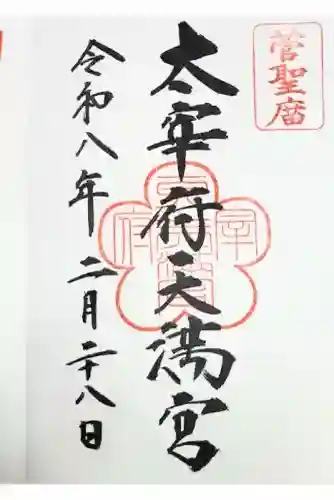 菅聖庿
太宰府天満宮
令和八年二月二十八日